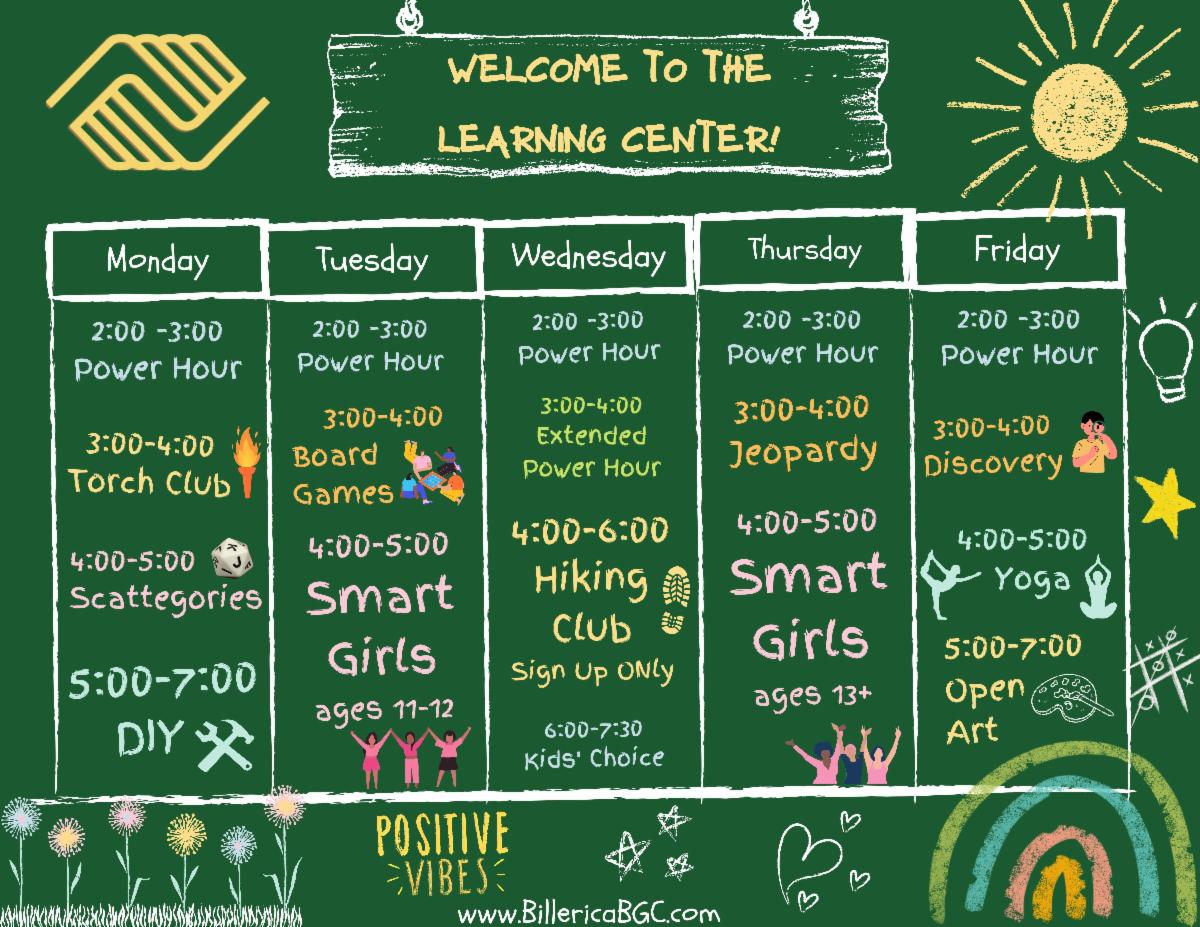 WELCOME TO THE
LEARNING CENTER!
Monday
2:00 -3:00
Power Hour
3:00-4:00
Torch Club
4:00-5:00
Scattegories
5:00-7:00
DIY
Tuesday
2:00 -3:00
Power Hour
3:00-4:00
Board
Games
4:00-5:00
Smart
Girls
ages 11-12
Wednesday
2:00 -3:00
Power Hour
3:00-4:00
Extended
Power Hour
4:00-6:00
Hiking
Club
Sign Up ONly
6:00-7:30
Kids' Choice
Thursday
2:00 -3:00
Power Hour
3:00-4:00
Jeopardy
4:00-5:00
Smart
Girls
ages 13+
Friday
2:00 -3:00
Power Hour
3:00-4:00
Discovery
4:00-5:00
Yoga
5:00-7:00
Open
Art
POSITIVE
VIBES
www.BillericaBGC.com